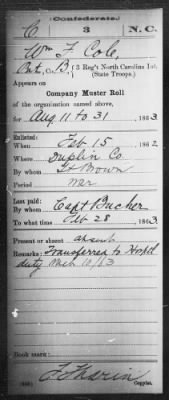 (Confederate.)
C 3 N.C.
Wm F Cole
Pvt, Co. B, 3 Reg't North Carolina Inf.
(State Troops.)
Appears on
Company Muster Roll
of the organization named above,
for Aug 11 to 31, 1863
Enlisted:
When Feb 15, 1862
Where Duplin Co
By whom Lt Brown
Period war
Last paid:
By whom Capt Bucher
To what time Feb 28, 1863
Present or absent absent
Remarks: Transferred to Hospl
duty Mch 10/63
Book mark:
Copyist.